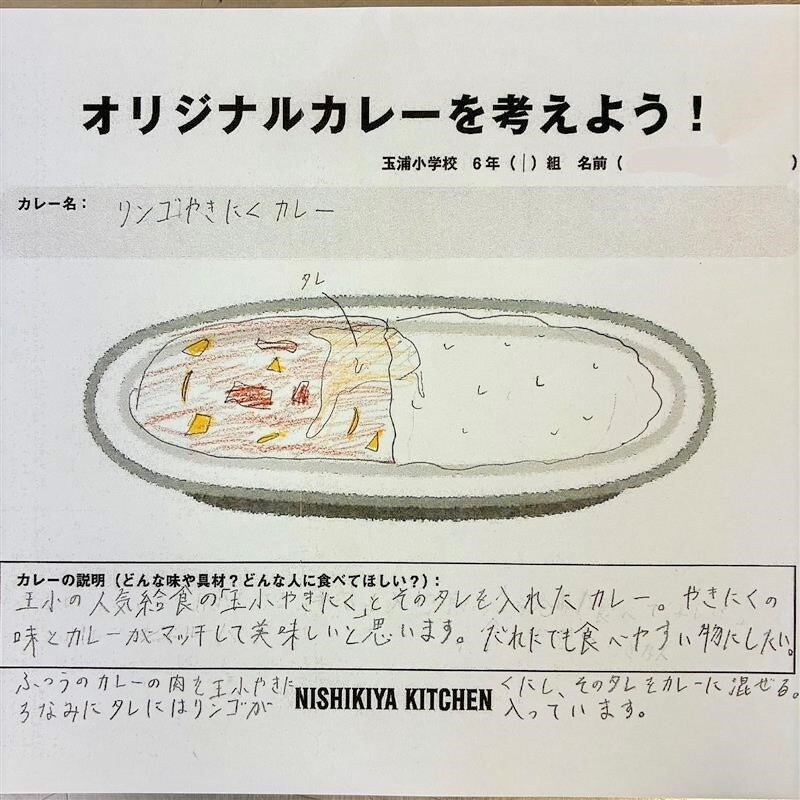 オリジナルカレーを考えよう！
玉浦小学校 6年（1）組 名前（ ）
カレー名： リンゴやきにくカレー
タレ
カレーの説明（どんな味や具材？どんな人に食べてほしい？）：
玉小の人気給食の「玉小やきにく」とそのタレを入れたカレー。やきにくの
味とカレーがマッチして美味しいと思います。だれにでも食べやすい物にしたい。
ふつうのカレーの肉を玉小やきにくにし、そのタレをカレーに混ぜる。
ちなみにタレにはリンゴが入っています。
NISHIKIYA KITCHEN